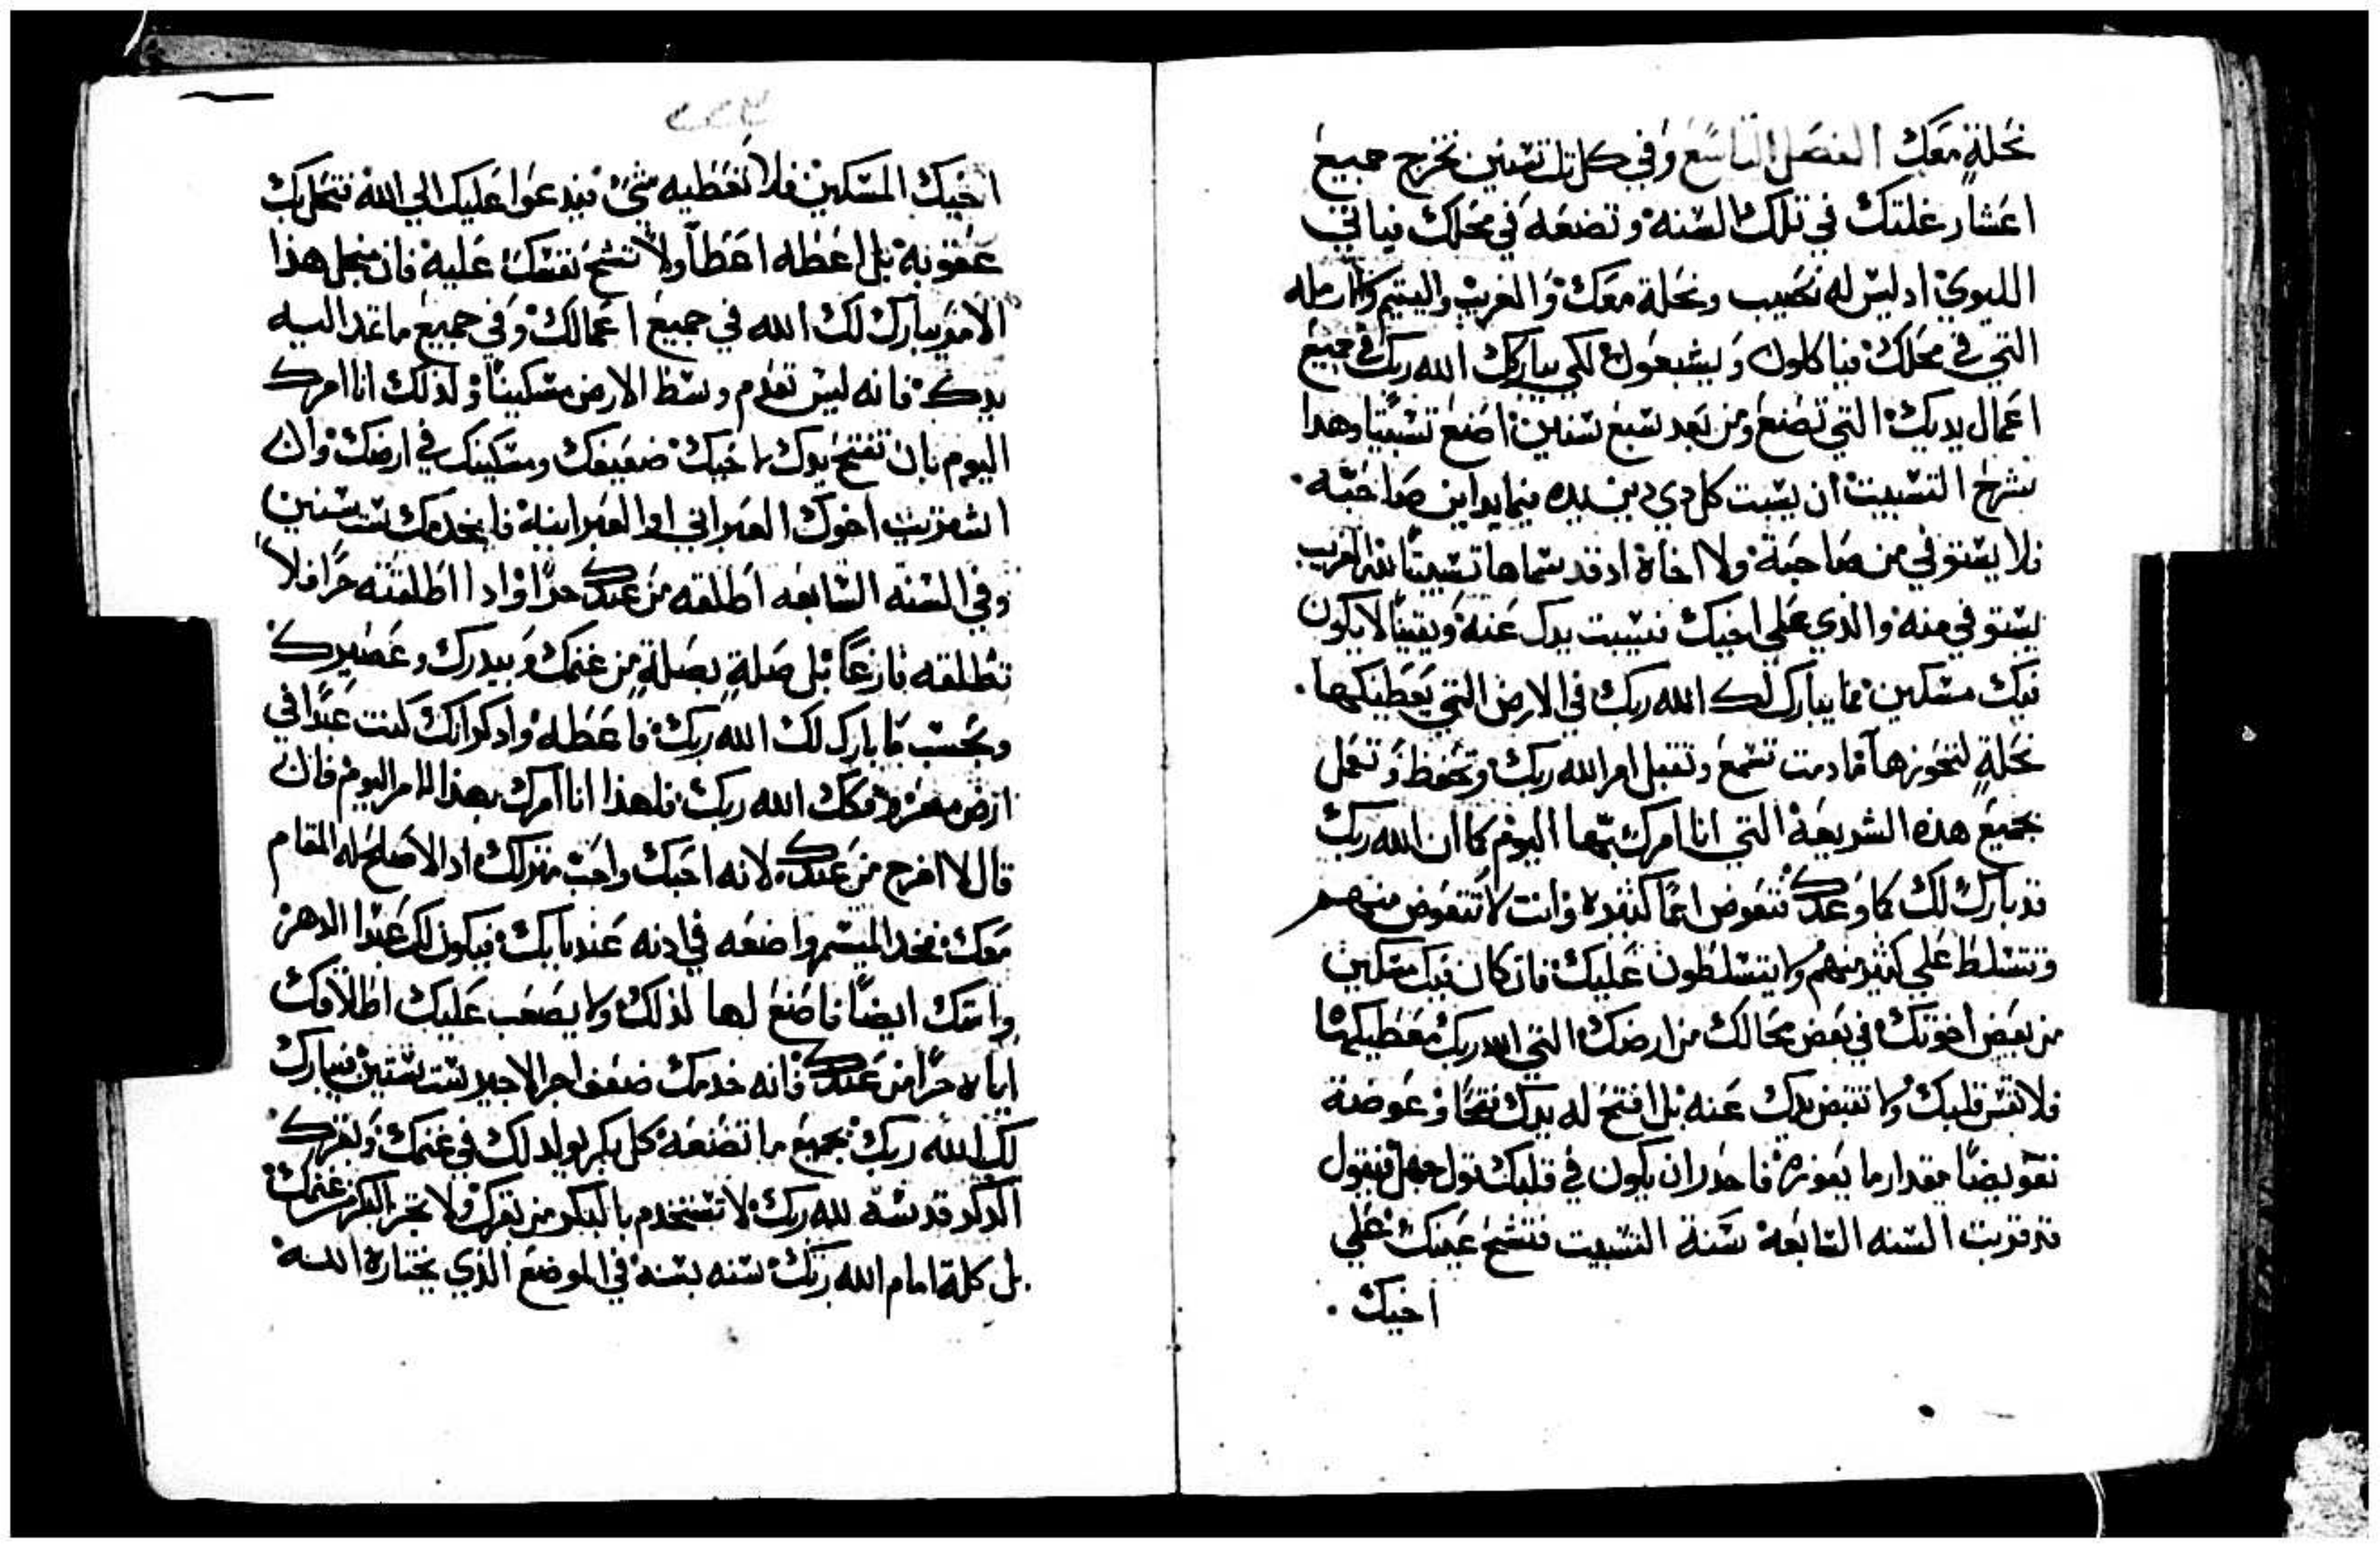 نحلة معك الفصل التاسع وفي كل تلت سنين تخرج جميع
اعشار غلتك في تلك السنه وتضعه في محلك فياتي
الليوي اد ليس له نصيب ونحلة معك والغريب واليتيم والارمله
التي في محلك فياكلون ويشبعون لكي يبارك الله ربك في جميع
اعمال يديك التي تصنع ومن بعد سبع سنين اصنع تسبيتا وهدا
شرح التسبيت ان يسبت كل دي دين يده فيما يداين صاحبه
فلا يستوفي من صاحبة ولا اخاه اد قد سماها تسبيتا لله الغريب
يستوفي منه والذي علي اخيك فيسبت يدك عنه ويقينا لا يكون
فيك مسكين مما يبارك لك الله ربك في الارض التي يعطيكها
نحلة لتحوزها ما دمت تسمع وتقبل امر الله ربك وتحفظ وتعمل
بجميع هذه الشريعة التي انا امرك بها اليوم كما ان الله ربك
قد بارك لك كما وعدك فتعوض امما كثيره وانت لا تتعوض منهم
وتتسلط علي كثير منهم ولا يتسلطون عليك فان كان فيك مسكين
من بعض اخوتك في بعض محالك من ارضك التي الله ربك معطيكها
فلا تقس قلبك ولا تقبض يدك عنه بل افتح له يدك فتحا وعوضة
تعويضا مقدار ما يعوزه فاحدر ان يكون في قلبك قول جهل فتقول
قد قربت السنه السابعة سنة التسبيت فتشح عينك علي
اخيك
اخيك المسكين فلا تعطيه شي فيدعوا عليك الي الله فتحل بك
عقوبة بل اعطه اعطآ ولا تشح نفسك عليه فان من اجل هذا
الامر يبارك لك الله في جميع اعمالك وفي جميع ما تمد اليه
يدك فانه ليس تعدم وسط الارض مسكينا ولذلك انا امرك
اليوم بان تفتح يدك لاخيك ضعيفك ومسكينك في ارضك وان
اشتريت اخوك العبراني او العبرانية فليخدمك ست سنين
وفي السنه السابعه اطلقه من عندك حرا واد ا اطلقته حرا فلا
تطلقه فارغا بل صلة بصلة من غنمك وبيدرك وعصيرك
وبحسب ما بارك لك الله ربك فاعطه وادكر انك كنت عبدا في
ارض مصر وفكك الله ربك فلهذا انا امرك بهذا الامر اليوم فان
قال لا اخرج من عندك لانه احبك واحب منزلك اد الاصلح له المقام
معك فخد الميسم واضعه في ادنه عند بابك فيكون لك عبدا الدهر
وامتك ايضا فاصنع لها لذلك ولا يصعب عليك اطلاقك
اياه حرا من عندك فانه خدمك ضعف اجر الاجير ست سنين فيبارك
لك الله ربك بجميع ما تصنعه كل بكر يولد لك في غنمك وبقرك
الدكر قدسه لله ربك لا تستخدم بالبكر من بقرك ولا تجز البكر من غنمك
بل كلة امام الله ربك سنه بسنه في الموضع الذي يختاره الله